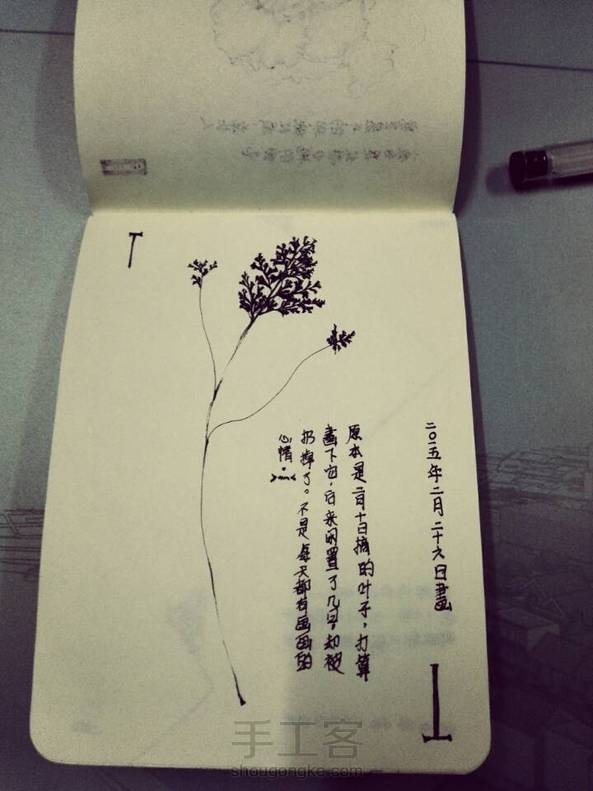 二〇一五年二月二十六日畫
原本是二月十日摘的叶子，打算
畫下它，后来闲置了几日，却被
扔掉了。不是每天都有画画的
心情。
手工客
shougongke.com